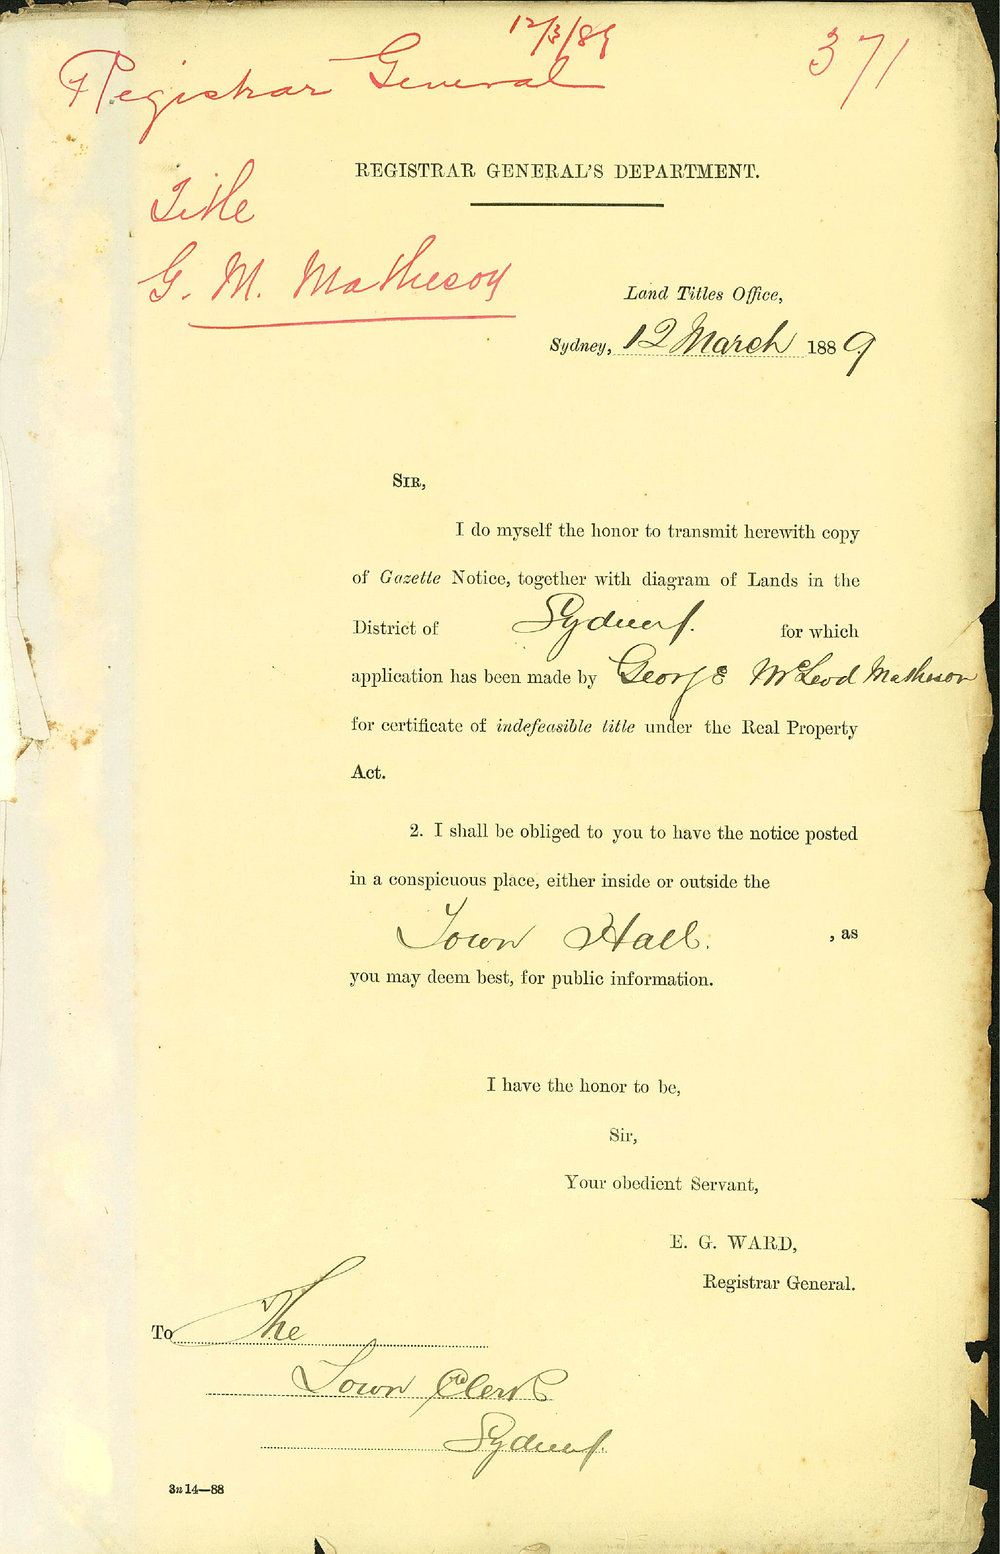 12/3/89
371
Registrar General
REGISTRAR GENERAL'S DEPARTMENT.
Title
G. M. Matheson
Land Titles Office,
Sydney, 12 March 1889
SIR,
I do myself the honor to transmit herewith copy
of Gazette Notice, together with diagram of Lands in the
District of Sydney. for which
application has been made by George McLeod Matheson
for certificate of indefeasible title under the Real Property
Act.
2. I shall be obliged to you to have the notice posted
in a conspicuous place, either inside or outside the
Town Hall. , as
you may deem best, for public information.
I have the honor to be,
Sir,
Your obedient Servant,
E. G. WARD,
Registrar General.
To The
Town Clerk
Sydney.
3n 14—88